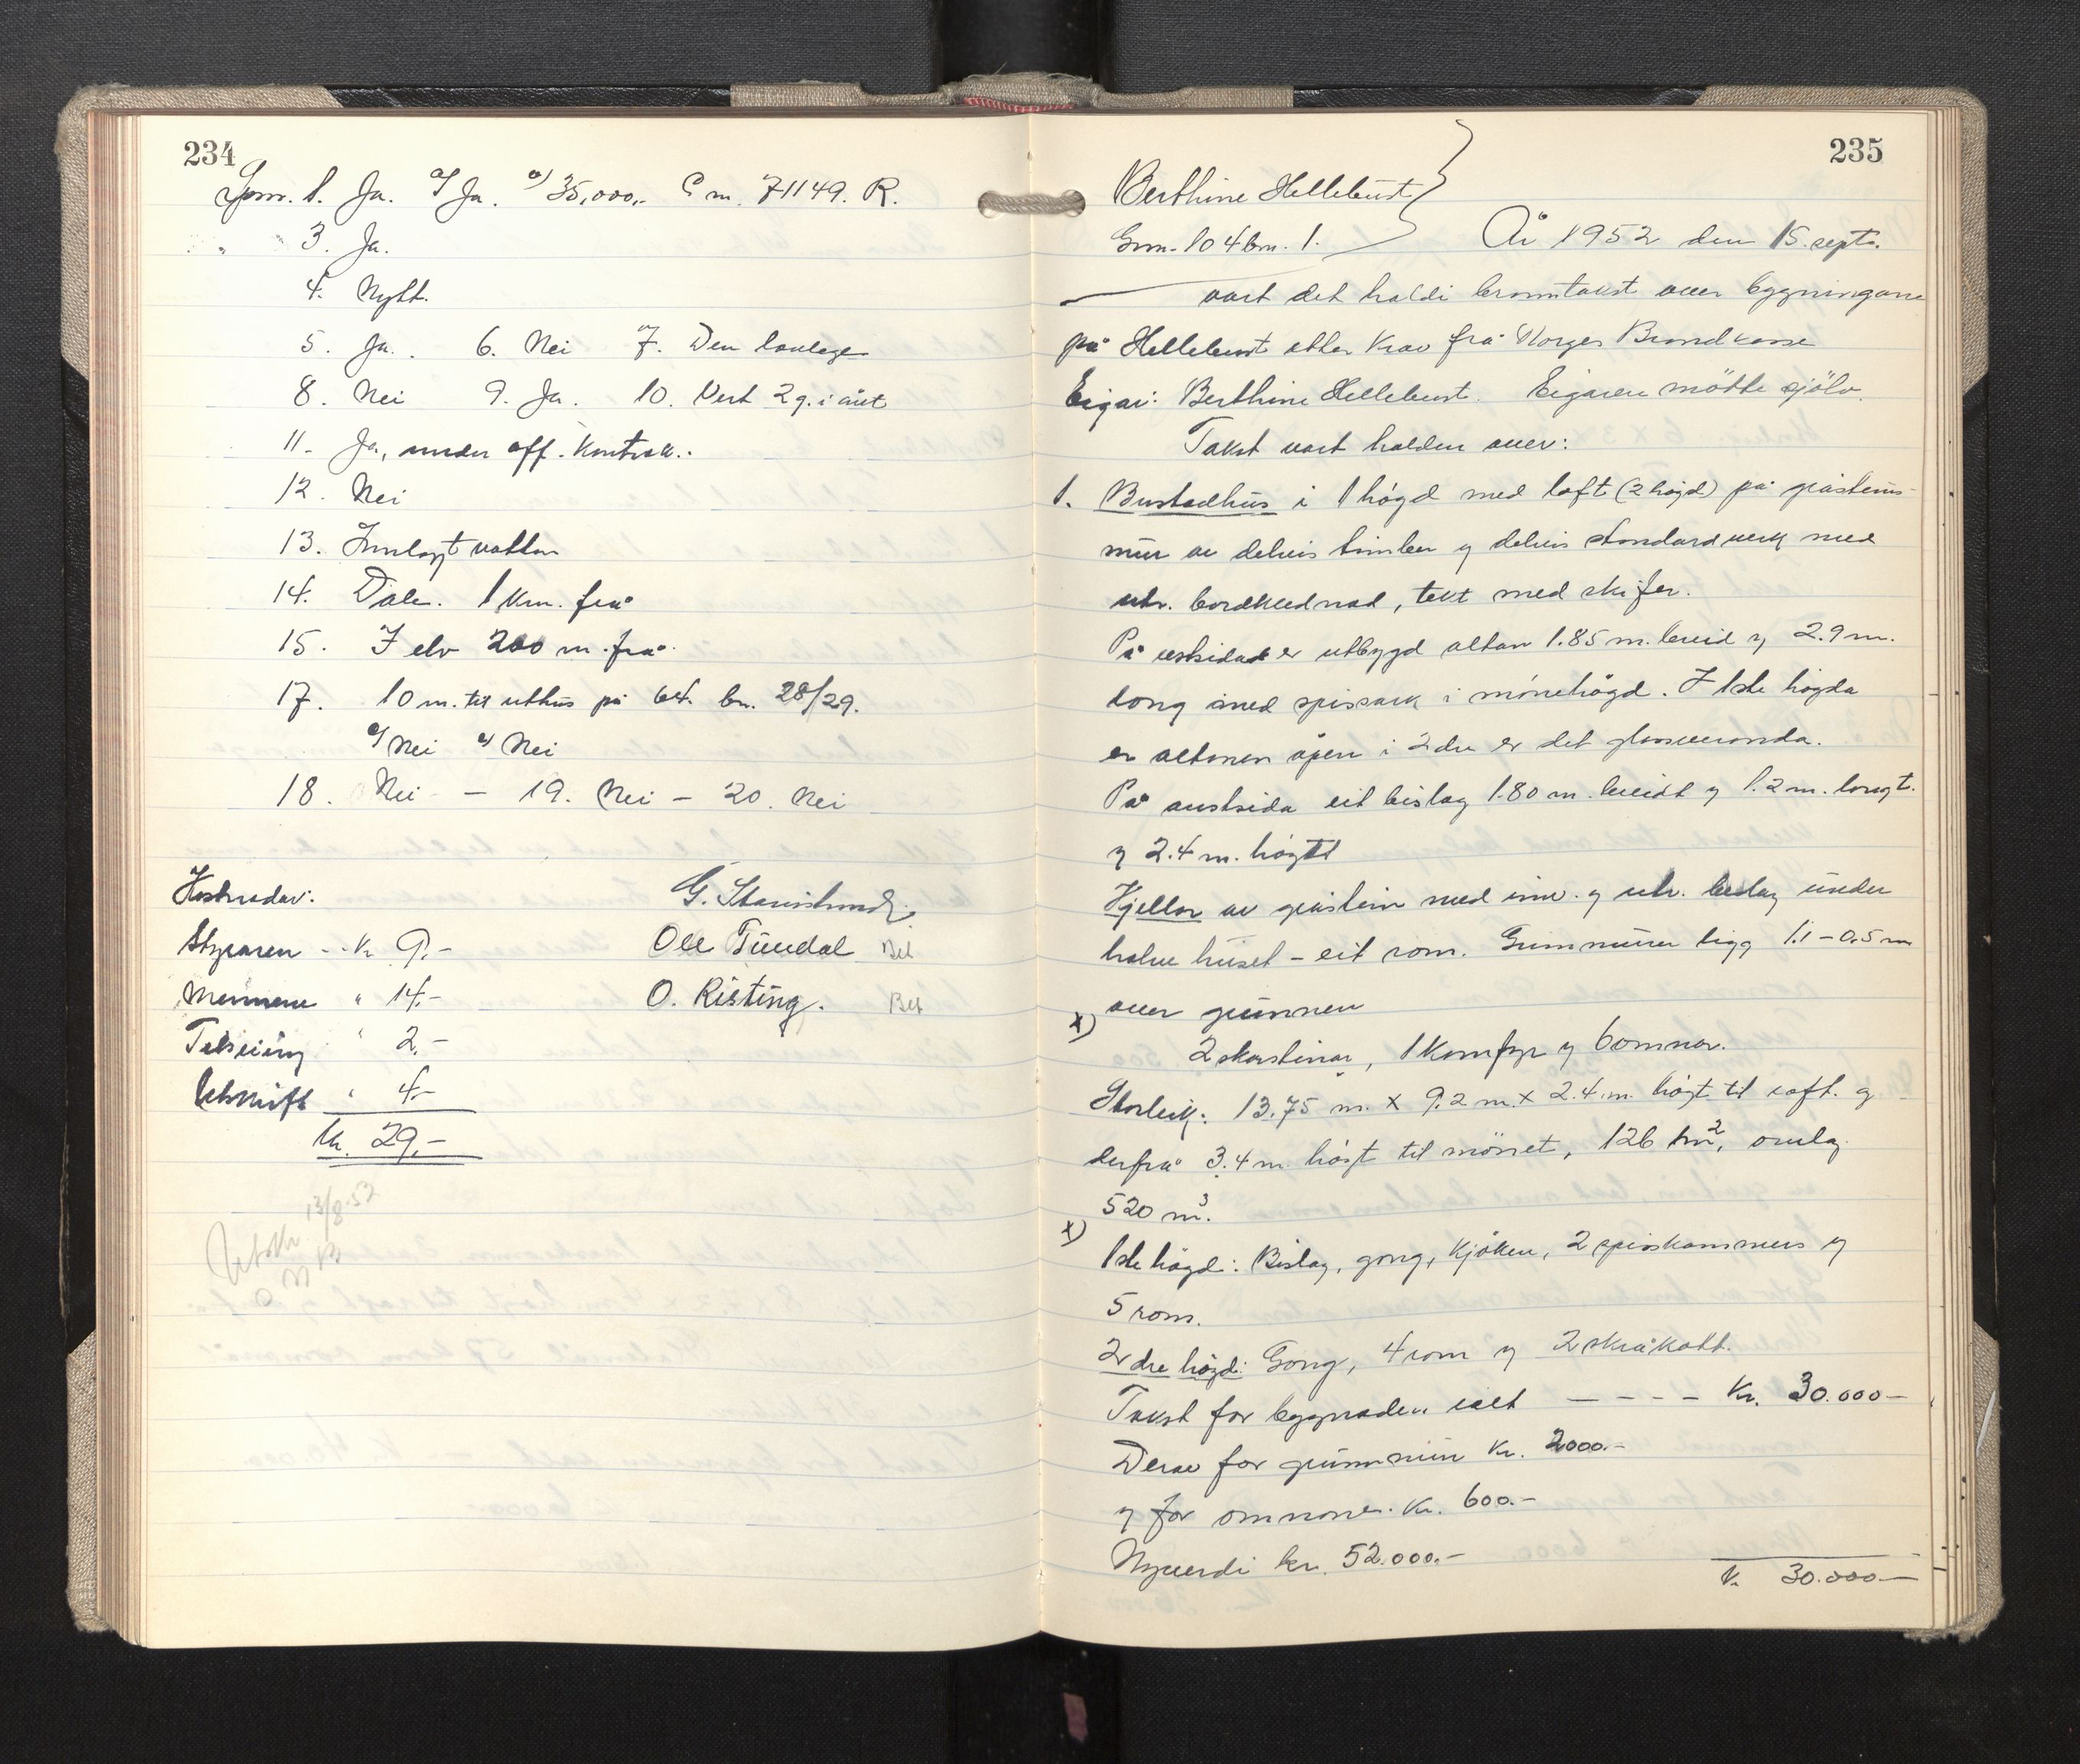 234
Spm. 1. Ja. a/ Ja. c/ 35,000,- C m. 71149. R.
" " 3. Ja.
4. Nytt.
5. Ja. 6. Nei 7. Den lovlege
8. Nei 9. Ja. 10. Vert 2 g. i året
11. Ja, under off. kontrol.
12. Nei
13. Innlagt vatten
14. Dale. 1 km. frå
15. I elv 200 m. frå.
17. 10 m. til uthus på bn. 28/29.
a/ Nei c/ Nei
18. Nei - 19. Nei - 20. Nei
Kostnadar:
Styraren - - kr 9,-
Mennene " 14,-
Tilseiing " 2,-
Utskrift " 4,-
kr. 29,-
G.
Ole Tundal Bet
O. Risting. Bet
13/8-52
235
Berthine Hellebust
Gnr. 104 bn. 1.
År 1952 den 15. sept.
vart det haldi branntakst over bygningane
på Hellebust etter krav frå Norges Brandkasse
Eigar: Berthine Hellebust. Eigaren møtte sjølv.
Takst vart halden over:
1. Bustadhus i 1 högd med loft (2 högd) på gråsteins-
mur av delvis timber og delvis standardverk med
utv. bordklednad, tekt med skifer.
På vestsida er utbygd altan 1.85 m. breid og 2.9 m.
long med spissark i mönehögd. I 1ste högda
er altanen open i 2dre er det glassveranda.
På austsida eit bislag 1.80 m. breidt og 1.2 m. longt.
og 2.4 m. högt
Kjellar av gråstein med innv. og utv. beslag under
halve huset - eit rom. Grunnmuren ligg 1.1 - 0.5 m
over grunnen
x) 2 skorsteinar, 1 komfyr og 6 omnar.
Storleik: 13.75 m. x 9.2 m. x 2.4 m. högt til raft. og
derfrå 3.4 m. högt til mönet, 126 m², omlag
520 m³.
x) 1ste högd: Bislag, gong, kjöken, 2 spiskammers og
5 rom.
2dre högd: Gong, 4 rom og 2 skråkott.
Takst for bygnaden ialt - - - - Kr. 30.000-
Derav for grunnmur kr. 2000.-
og for omnane. kr. 600.-
Nyverdi kr. 52.000.-
kr. 30.000-